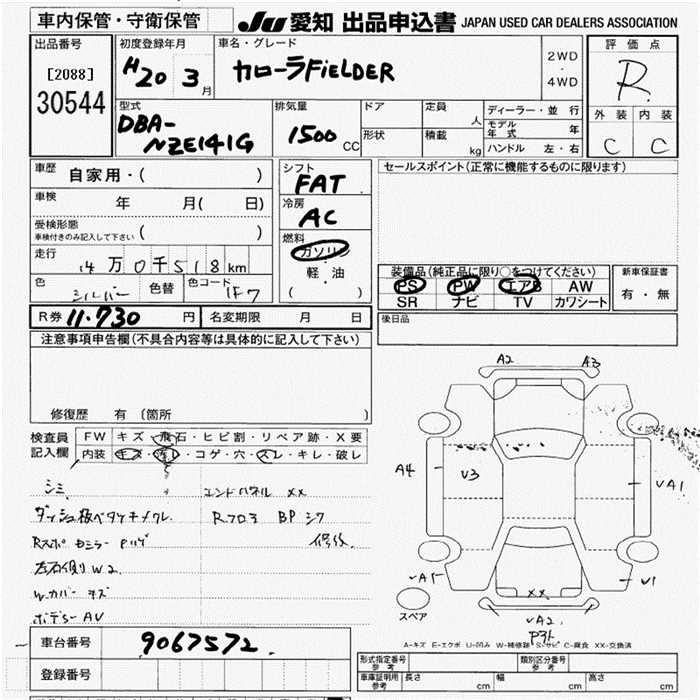 車内保管・守衛保管
JU 愛知 出品申込書 JAPAN USED CAR DEALERS ASSOCIATION
出品番号
[2088]
30544
初度登録年月
H20 3月
車名・グレード
カローラFiELDER
2WD
・
4WD
評価点
R
外装 内装
C C
型式
DBA-
NZE141G
排気量
1500 CC
ドア
形状
定員 人
積載 kg
ディーラー・並行
モデル年式 年
ハンドル 左・右
車歴 自家用・( )
車検 年 月( 日)
受検形態
車検付きのみ記入して下さい ( )
走行 14万0千518km
色 シルバー 色替 色コード 1F7
シフト
FAT
冷房
AC
燃料
ガソリン
・
軽・油
( )
セールスポイント(正常に機能するものに限ります)
装備品(純正品に限り○をつけてください)
PS PW エアB AW
SR ナビ TV カワシート
新車保証書
有・無
R券 11.730 円 名変期限 月 日
後日品
注意事項申告欄(不具合内容等は具体的に記入して下さい)
修復歴 有 〔箇所 〕
検査員
記入欄
FW キズ・飛石・ヒビ割・リペア跡・X要
内装 キズ・汚レ・コゲ・穴・スレ・キレ・破レ
シミ エンドパネル XX
R703 BP シワ
修後
W.カバー キズ
ボデー AV
A2 A3
A4 V3 VA1
VA1 V1
XX
VA2
スペア
A-キズ E-エクボ U-凹み W-補修跡 S-サビ C-腐食 XX-交換済
車台番号 9067572
登録番号
形式指定番号
参考
類別区分番号
参考
車庫証明用
参考
長さ cm 幅 cm 高さ cm